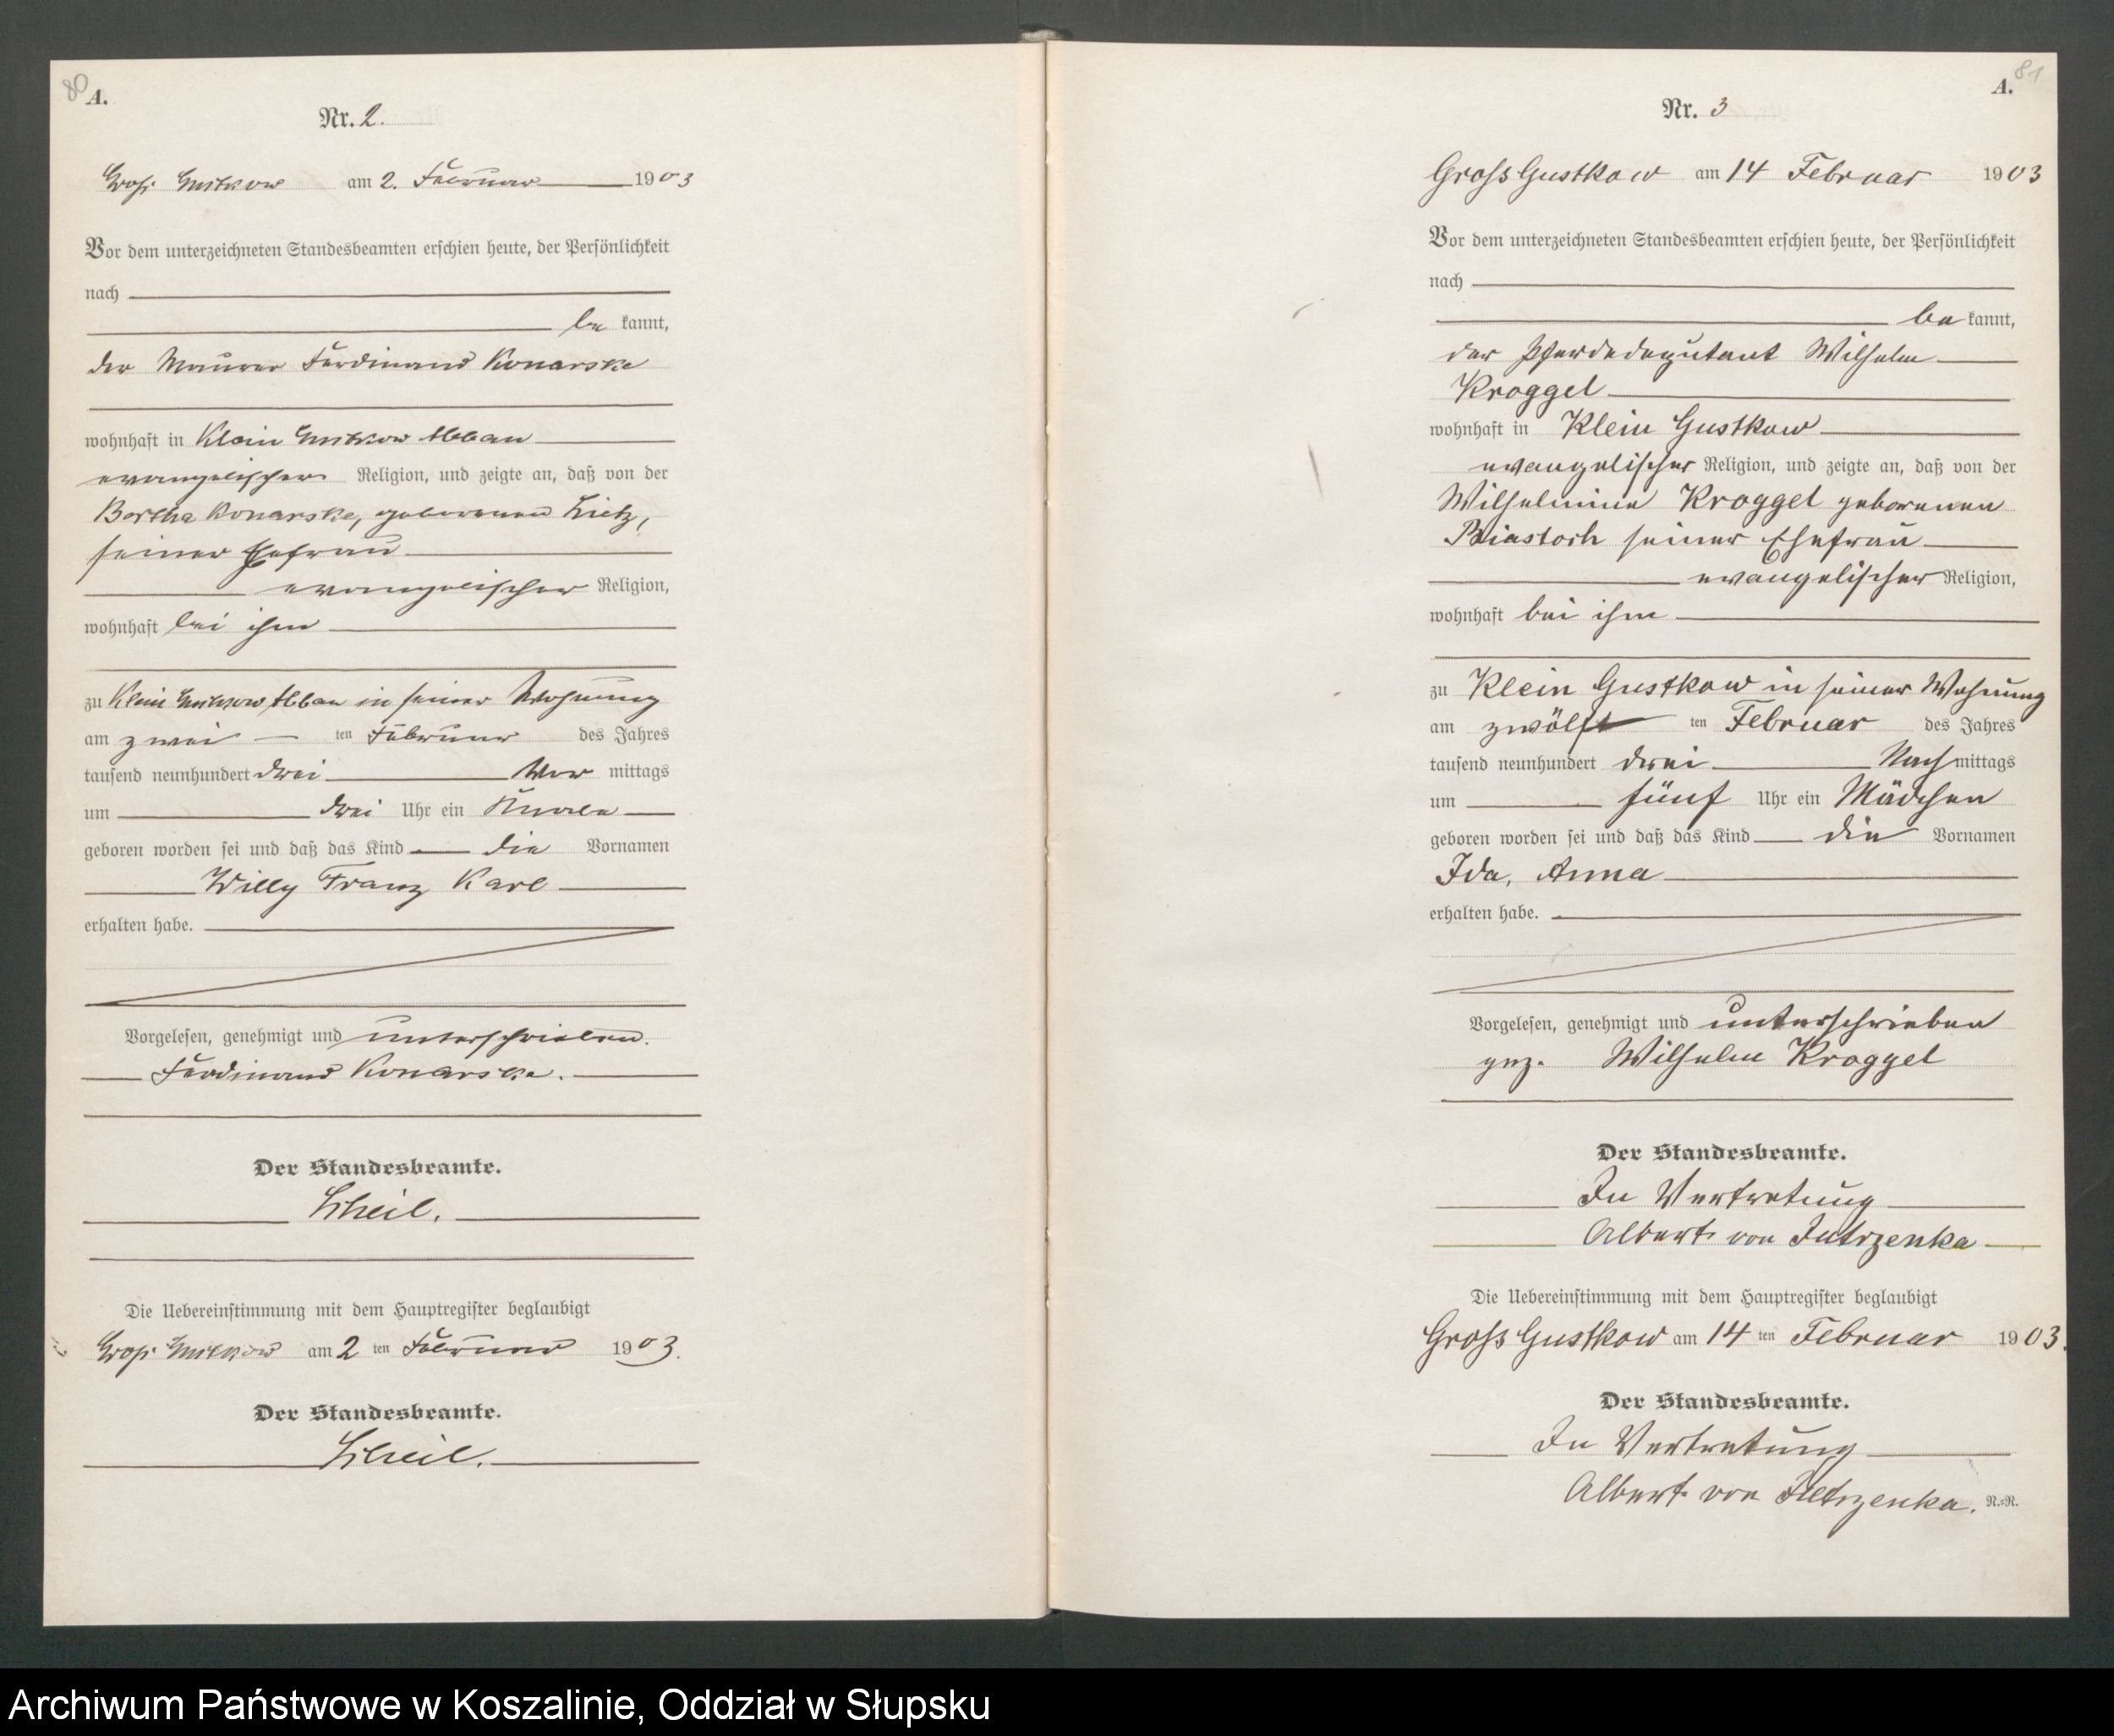 80
A.
Nr. 2.
Groß Gustkow am 2. Februar 1903
Vor dem unterzeichneten Standesbeamten erschien heute, der Persönlichkeit
nach
be kannt,
der Maurer Ferdinand Konarske
wohnhaft in Klein Gustkow Abbau
evangelischer Religion, und zeigte an, daß von der
Bertha Konarske, geborenen Lietz,
seiner Ehefrau
evangelischer Religion,
wohnhaft bei ihm
zu Klein Gustkow Abbau in seiner Wohnung
am zwei ten Februar des Jahres
tausend neunhundert drei Vor mittags
um drei Uhr ein Knabe
geboren worden sei und daß das Kind die Vornamen
Willy Franz Karl
erhalten habe.
Vorgelesen, genehmigt und unterschrieben.
Ferdinand Konarske.
Der Standesbeamte.
Scheil.
Die Uebereinstimmung mit dem Hauptregister beglaubigt
Groß Gustkow am 2 ten Februar 1903.
Der Standesbeamte.
Scheil.
81
A.
Nr. 3
Gross Gustkow am 14 Februar 1903
Vor dem unterzeichneten Standesbeamten erschien heute, der Persönlichkeit
nach
be kannt,
der Pferdedeputant Wilhelm
Kroggel
wohnhaft in Klein Gustkow
evangelischer Religion, und zeigte an, daß von der
Wilhelmine Kroggel geborenen
Piastoch seiner Ehefrau
evangelischer Religion,
wohnhaft bei ihm
zu Klein Gustkow in seiner Wohnung
am zwölf ten Februar des Jahres
tausend neunhundert drei Nach mittags
um fünf Uhr ein Mädchen
geboren worden sei und daß das Kind die Vornamen
Ida, Anna
erhalten habe.
Vorgelesen, genehmigt und unterschrieben
gez. Wilhelm Kroggel
Der Standesbeamte.
In Vertretung
Albert von Jutrzenka
Die Uebereinstimmung mit dem Hauptregister beglaubigt
Gross Gustkow am 14 ten Februar 1903.
Der Standesbeamte.
In Vertretung
Albert von Jutrzenka. N.=R.
Archiwum Państwowe w Koszalinie, Oddział w Słupsku